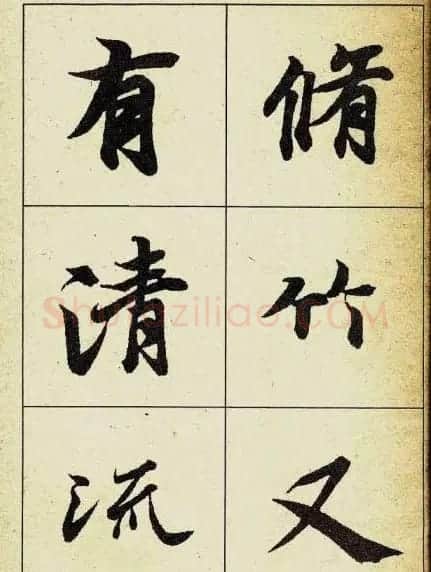 脩竹又
有清流
Shufaziliao.COM